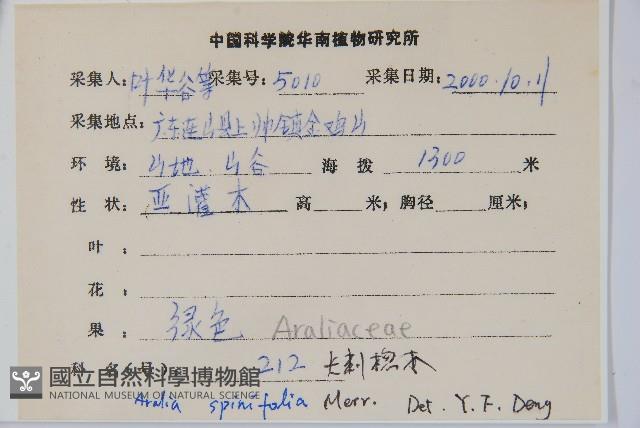 中国科学院华南植物研究所
采集人：叶华谷等 采集号：5010 采集日期：2000.10.11
采集地点：广东连山县上帅镇金鸡山
环 境：山地，山谷 海 拨 1300 米
性 状：亚灌木 高 米；胸径 厘米；
叶：
花：
果：绿色 Araliaceae
科 名(号) 212 长刺楤木
國立自然科學博物館
NATIONAL MUSEUM OF NATURAL SCIENCE
Aralia spinifolia Merr. Det. Y. F. Deng